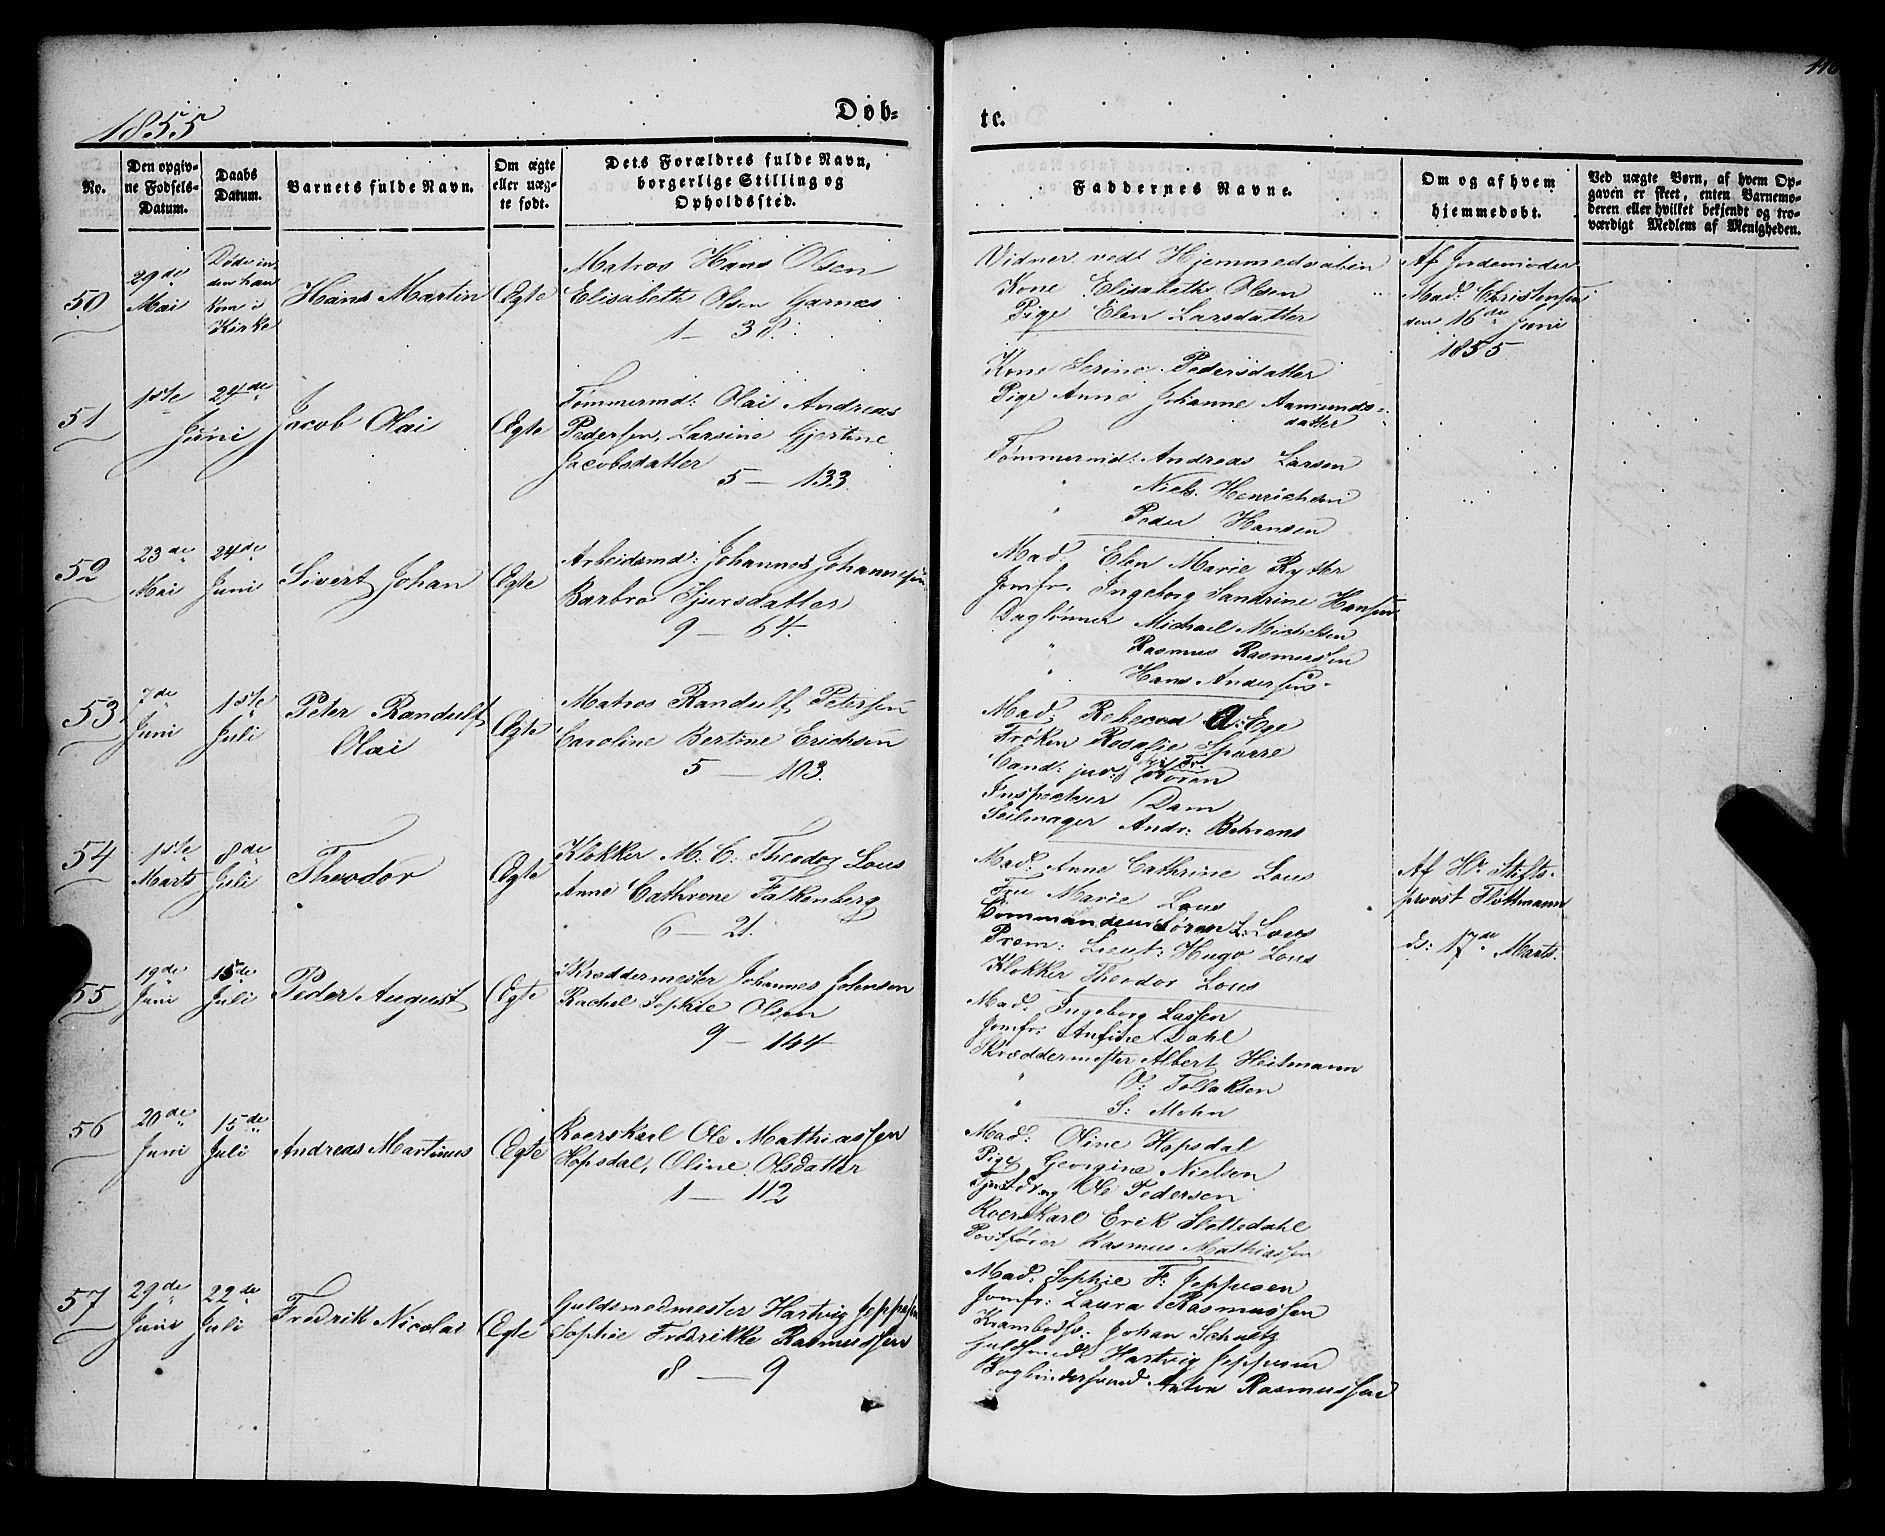 1855
Døb-
te.
No.
Den opgiv-
ne Fødsels-
Datum.
Daabs
Datum.
Barnets fulde Navn.
Om ægte
eller uæg-
te født.
Dets Forældres fulde Navn,
borgerlige Stilling og
Opholdssted.
Faddernes Navne.
Om og af hvem
hjemmedøbt.
Ved uægte Børn, af hvem Op-
gaven er skeet, enten Barnemo-
deren eller hvilket bekjendt og tro-
værdigt Medlem af Menigheden.
50
29de
Mai
Døde in-
den han
kom i
Kirke
Hans Martin
Ægte
Matros Hans Olsen
Elisabeth Olsen Garnæs
1 — 38.
Vidner ved Hjemmedaaben
Kone Elisabeth Olsen
Pige Elen Larsdatter
Af Jordemoder
Mad: Christensen
den 16de Juni
1855
51
1ste
24de
Juni
Jacob Olai
Ægte
Tømmermd: Olai Andreas
Pedersen, Larsine Gjertine
Jacobsdatter
5 — 133.
Kone Serina Pedersdatter
Pige Anne Johanne Aamunds-
datter
Tømmermd: Andreas Larsen
" Niels Henrichsen
" Peder Hansen
52
23de
Mai
24de
Juni
Sivert Johan
Ægte
Arbeidsmd: Johannes Johannesen
Barbro Sjursdatter
9 — 64.
Mad. Elen Marie Rytter
Jomfr. Ingeborg Sandrine Hansen
Daglønner Michael Michelsen
" Rasmus Rasmussen
" Hans Andersen
53
7de
Juni
1ste
Juli
Peter Randulf
Olai
Ægte
Matros Randulf Petersen
Caroline Bertine Erichsen
5 — 103.
Mad. Rebecca A: Ege
Frøken Rosalie Sparre
Cand: jur: Koren
Inspecteur Dam
Seilmager Andr: Behrens
54
1ste
Marts
8de
Juli
Theodor
Ægte
Klokker M. C. Theodor Lous
Anne Cathrine Falkenberg
6 — 21.
Mad. Anne Cathrine Lous
Fru Marie Lous
Commandeur Søren L: Lous
Prem: Lieut: Hugo Lous
Klokker Theodor Lous
Af Hr Stifts-
provst Flottmann
ds: 17de Marts.
55
19de
Juni
15de
Juli
Peder August
Ægte
Skræddermester Johannes Johnsen
Rachel Sophie Olsen
9 — 144
Mad. Ingeborg Lassen
Jomfr: Anfine Dahl
Skræddermester Albert Heitmann
" O: Tollaksen
" S: Mohn
56
20de
Juni
15de
Juli
Andreas Martinus
Ægte
Roerskarl Ole Mathiassen
Hopsdal, Oline Olsdatter
1 — 112
Mad: Oline Hopsdal
Pige Georgine Nielsen
Ole Pedersen
Roerskarl Erik Slettedahl
Postfører Rasmus Mathiassen
57
29de
Juni
22de
Juli
Fredrik Nicolai
Ægte
Guldsmedmester Hartvig Jeppesen
Sophie Fredrikke Rasmussen
8 — 9
Mad. Sophie F: Jeppesen
Jomfr: Laura Rasmussen
Krambodss: Johan Schultz
Guldsmed Hartvig Jeppesen
Bogbindersvend Anton Rasmussen